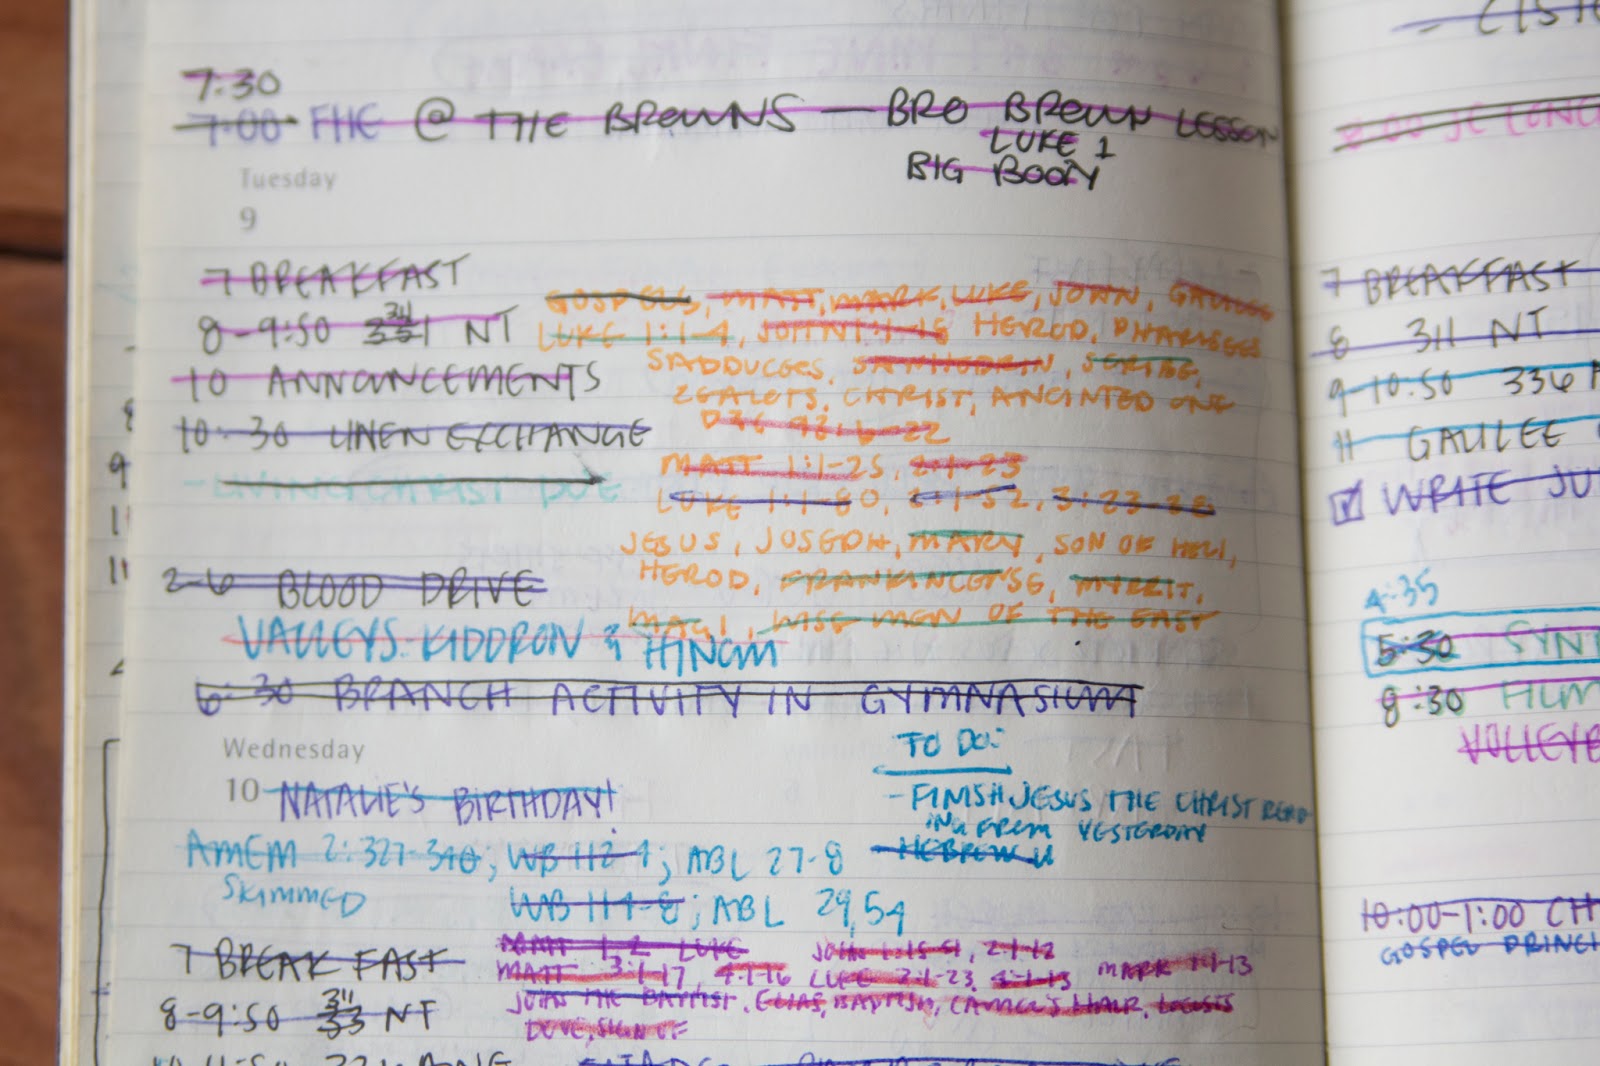 7:30
7:00 FHE @ THE BROWNS — BRO BROWN LESSON
LUKE 1
BIG BOOTY
Tuesday
9
7 BREAKFAST
8-9:50 NT
10 ANNOUNCEMENTS
10:30 LINEN EXCHANGE
- LIVING CHRIST DUE
GOSPELS, MATT, MARK, LUKE, JOHN, GALILEE
LUKE 1:1-4, JOHN 1:1-18 HEROD, PHARISEES
SADDUCEES, SANHEDRIN, SCRIBE,
ZEALOTS, CHRIST, ANOINTED ONE
MATT 1:1-25, 2:1-23
LUKE 1:1-80, 2:1-52, 3:23-38
JESUS, JOSEPH, MARY, SON OF HELI,
HEROD, FRANKINCENSE, MYRRH,
MAGI, WISE MEN OF THE EAST
2-6 BLOOD DRIVE
VALLEYS: KIDDRON & HINOM
6:30 BRANCH ACTIVITY IN GYMNASIUM
Wednesday
10 NATALIE'S BIRTHDAY!
TO DO:
- FINISH JESUS THE CHRIST READ-
ING FROM YESTERDAY
- HEBREW U
AMEM 2:327-340; WB 112-4; ABL 27-8
SKIMMED
WB 114-8; ABL 29,54
7 BREAKFAST
8-9:50 NT
MATT 1,2 LUKE JOHN 1:15-51, 2:1-12
MATT 3:1-17, 4:1-16 LUKE 2:1-23, 4:1-13 MARK 1:1-13
JOHN THE BAPTIST, ELIAS, BAPTISM, CAMEL'S HAIR, LOCUSTS
DOVE, SIGN OF
7 BREAKFAST
8 311 NT
9-10:50 336
11 GALILEE
WRITE JU
4:35
5:30 SYN
8:30 FILM
VOLLEYB
10:00-1:00 CH
GOSPEL PRINCI